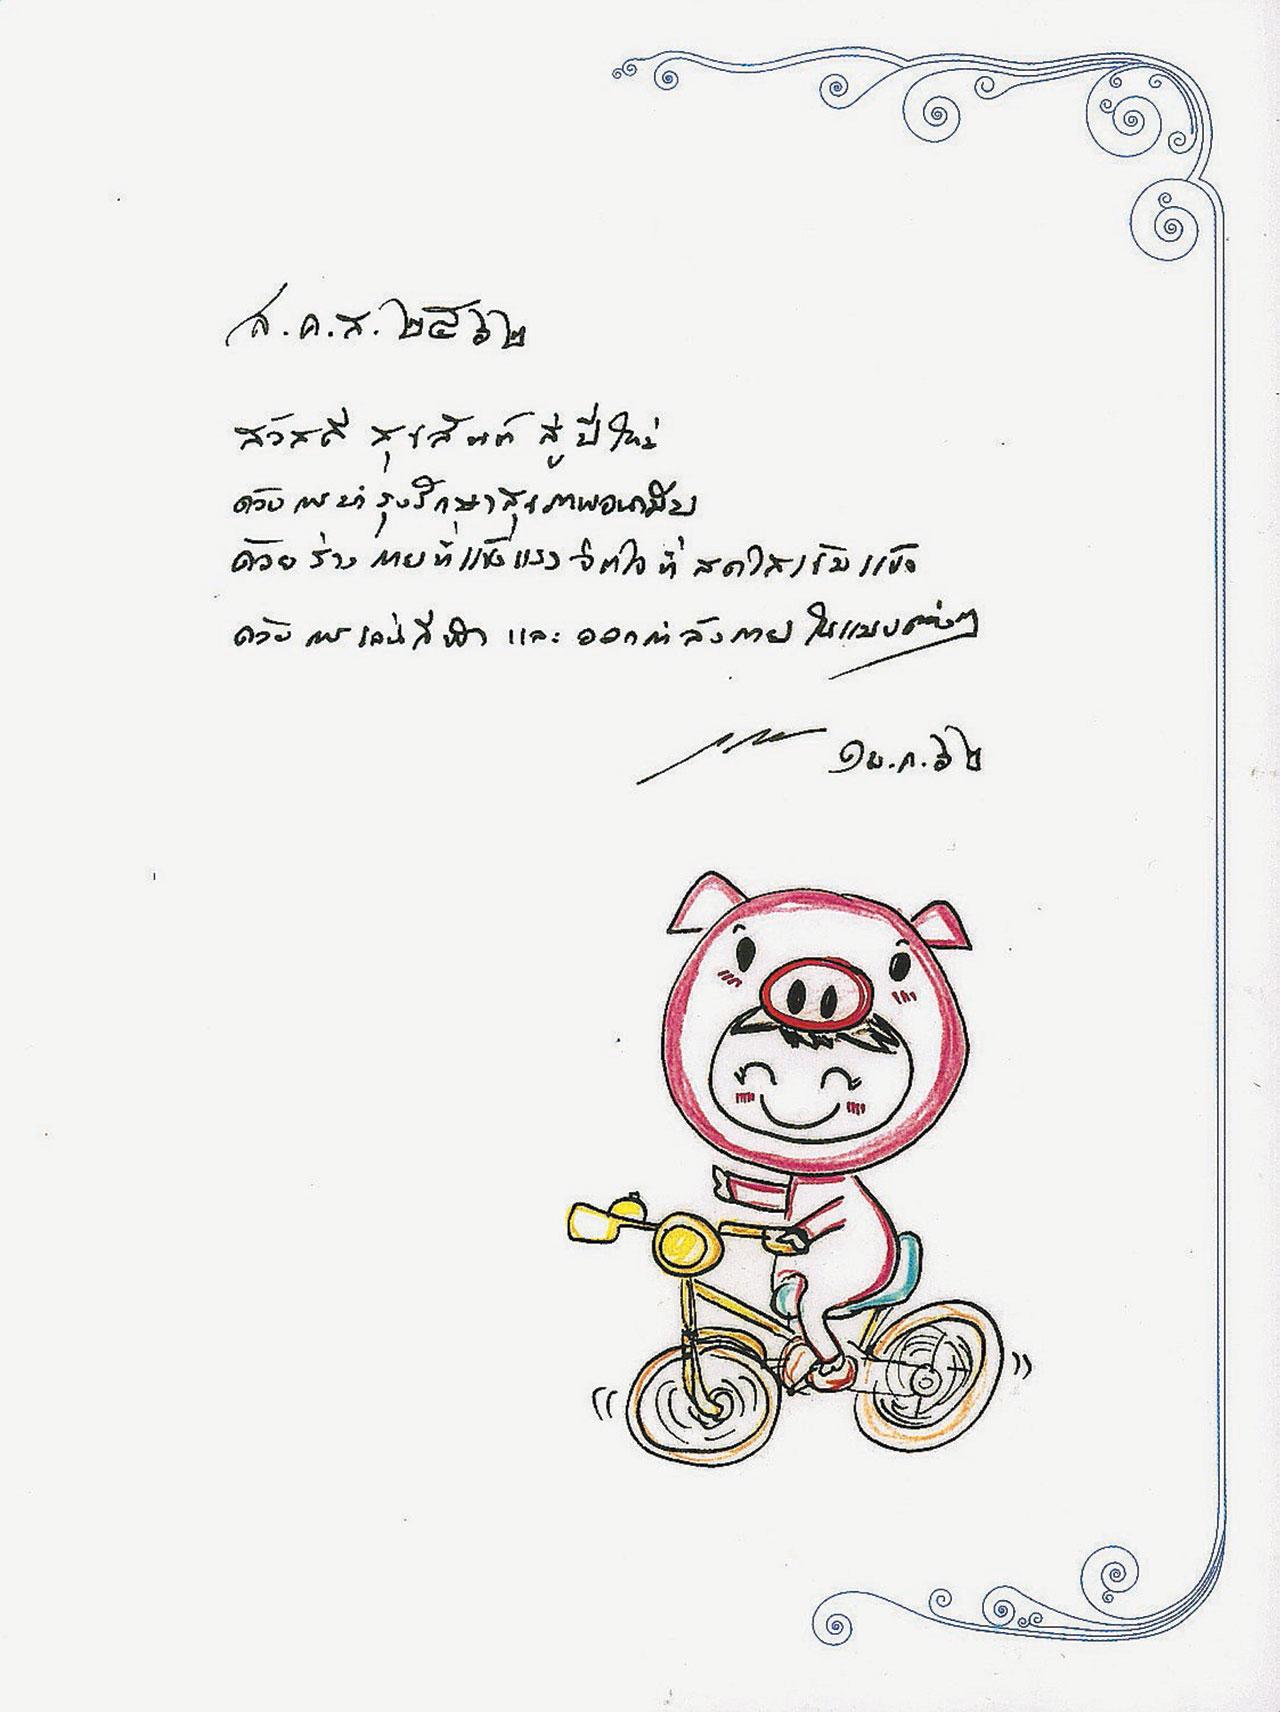 ส.ค.ส. ๒๕๖๒
สวัสดี สุขสันต์ สู่ ปีใหม่
ด้วยการบำรุงรักษาสุขภาพอนามัย
ด้วยร่างกายที่แข็งแรง จิตใจที่สดใสเข้มแข็ง
ด้วยการเล่นกีฬา และ ออกกำลังกาย ในแบบต่างๆ
๑ ม.ค. ๖๒